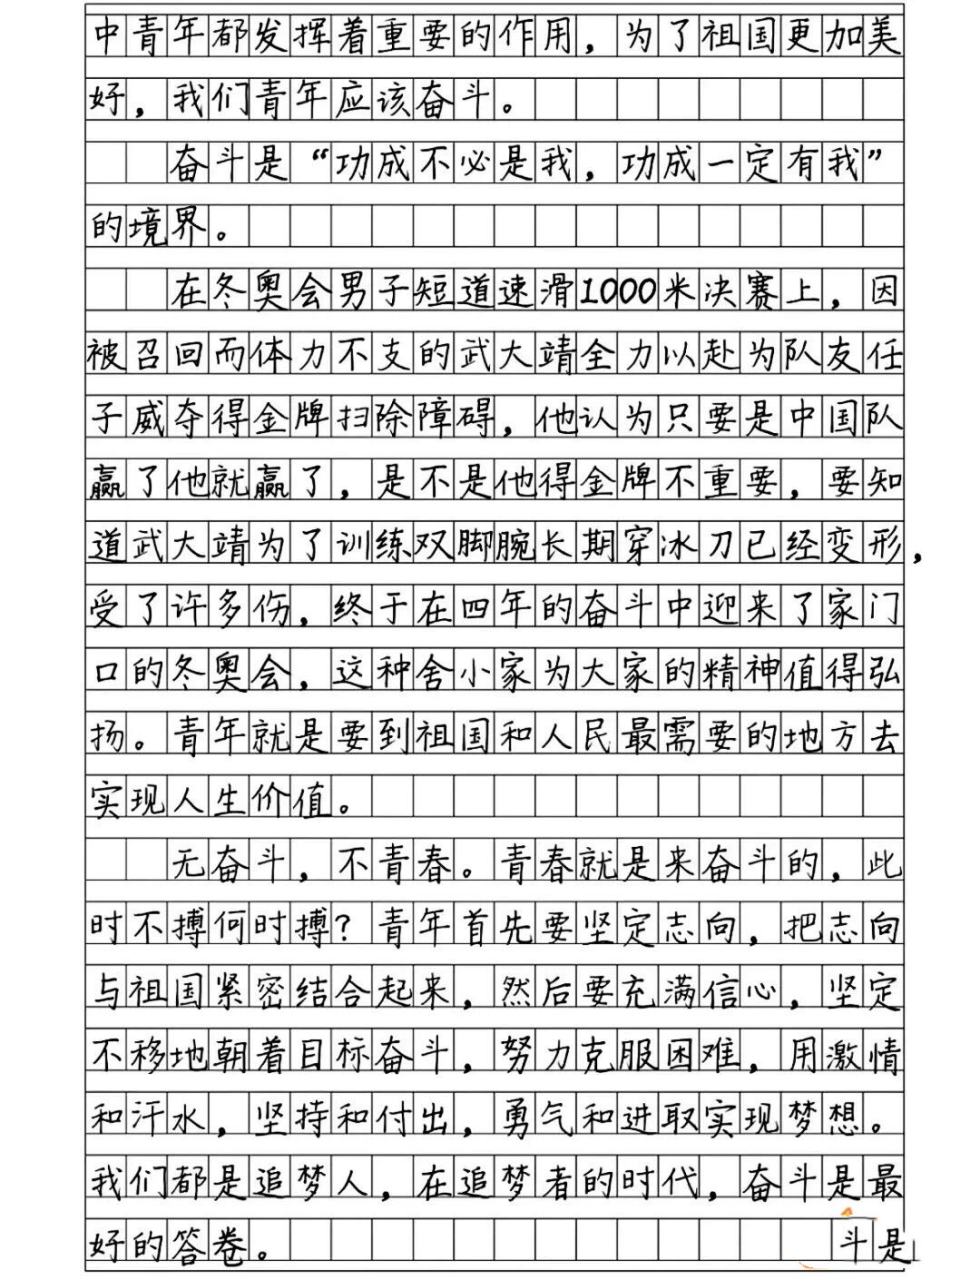 中青年都发挥着重要的作用，为了祖国更加美
好，我们青年应该奋斗。
奋斗是“功成不必是我，功成一定有我”
的境界。
在冬奥会男子短道速滑1000米决赛上，因
被召回而体力不支的武大靖全力以赴为队友任
子威夺得金牌扫除障碍，他认为只要是中国队
赢了他就赢了，是不是他得金牌不重要，要知
道武大靖为了训练双脚腕长期穿冰刀已经变形，
受了许多伤，终于在四年的奋斗中迎来了家门
口的冬奥会，这种舍小家为大家的精神值得弘
扬。青年就是要到祖国和人民最需要的地方去
实现人生价值。
无奋斗，不青春。青春就是来奋斗的，此
时不搏何时搏？青年首先要坚定志向，把志向
与祖国紧密结合起来，然后要充满信心，坚定
不移地朝着目标奋斗，努力克服困难，用激情
和汗水，坚持和付出，勇气和进取实现梦想。
我们都是追梦人，在追梦者的时代，奋斗是最
好的答卷。 斗是